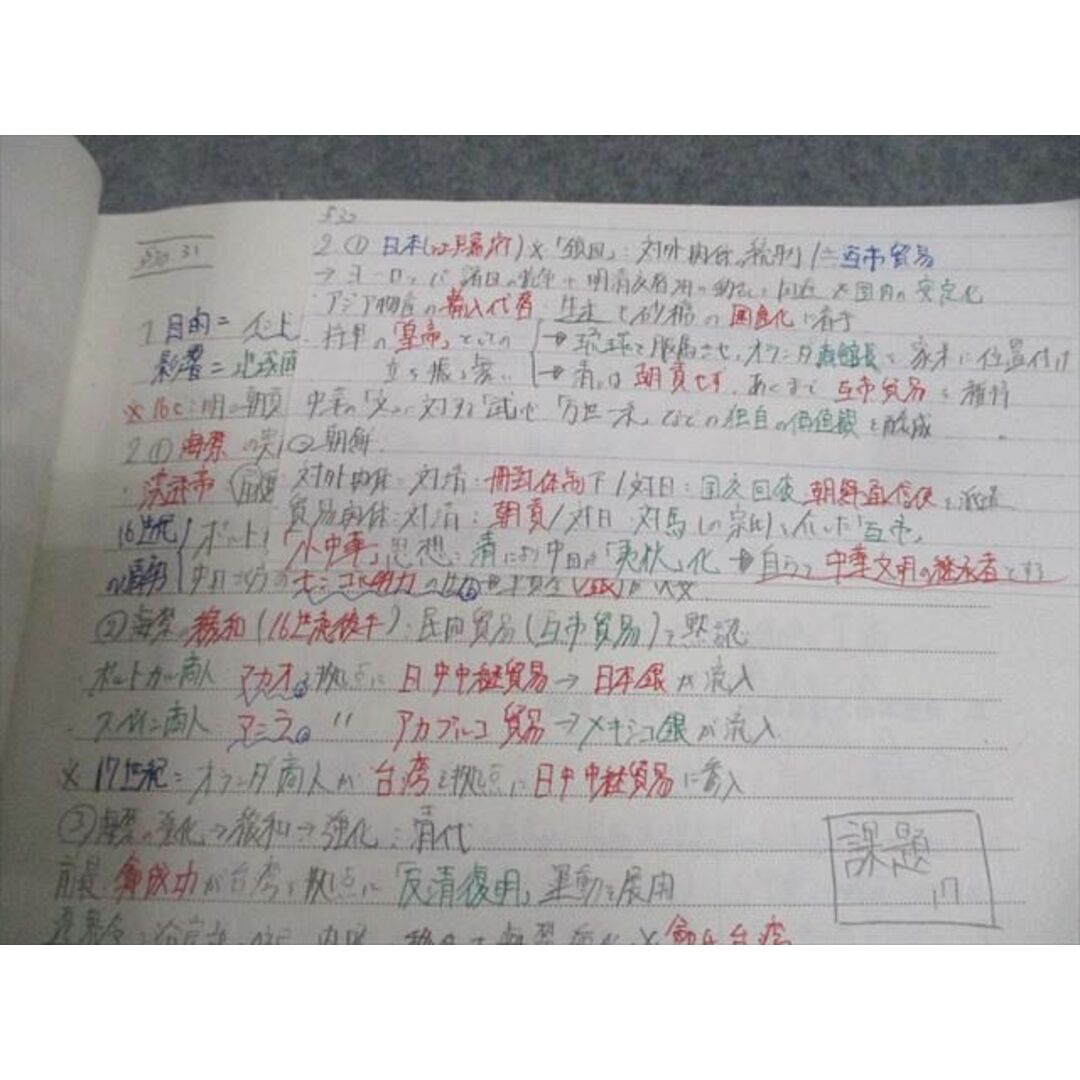 530
530 31
2.① 日本(江戸幕府)※「鎖国」: 対外関係の統制/=互市貿易
→ヨーロッパ諸国の紛争+明清交替期の動乱を回避 ※国内の安定化
アジア物産の輸入代替 生糸と砂糖の国産化に着手
将軍の「皇帝」としての立ち振る舞い
→琉球を服属させ、オランダ商館長を家来に位置付け
→清には朝貢せず、あくまで互市貿易を維持
中華の「文」に対する「武」や「万世一系」などの独自の価値観を醸成
② 朝鮮
対外関係: 対清: 冊封体制下/対日: 国交回復 朝鮮通信使を派遣
貿易関係: 対清: 朝貢/対日: 対馬の宗氏を介した「互市」
「小中華」思想: 清により中国は「夷狄」化→自らを中華文明の継承者とする
1 目的=インド
影響=地球
※16c: 明の朝貢
2① 海禁の実
・洪武帝
16世紀の展開
ポルト
② 海禁の緩和(16世紀後半): 民間貿易(互市貿易)を黙認
・ポルトガル商人: マカオを拠点に 日中中継貿易→日本銀が流入
・スペイン商人: マニラ 〃 アカプルコ貿易→メキシコ銀が流入
※17世紀=オランダ商人が台湾を拠点に日中中継貿易に参入
③ 海禁の強化→緩和→強化: 清代
背景: 鄭成功が台湾を拠点に「反清復明」運動を展開
課題
17